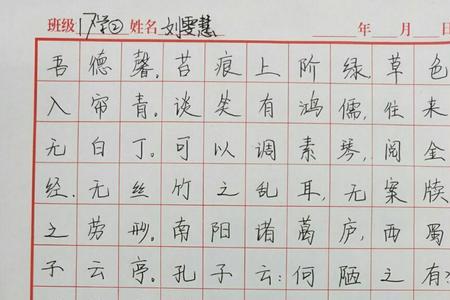 班级 17学② 姓名 刘雯慧 年 月 日
吾德馨。苔痕上阶绿草色
入帘青。谈笑有鸿儒,往来
无白丁。可以调素琴,阅金
经.无丝竹之乱耳,无案牍
之劳形。南阳诸葛庐,西蜀
子云亭。孔子云:何陋之有